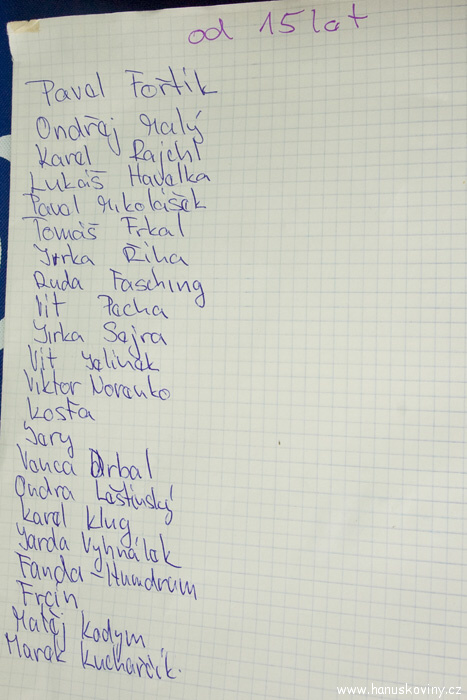 od 15 lat
Pavel Fořtik
Ondřej Malý
Karel Rajchl
Lukáš Havelka
Pavel Mikolášek
Tomáš Frkal
Jirka Říha
Ruda Fasching
Vít Pecha
Jirka Sejra
Vít Jelínek
Viktor Noranko
Kosťa
Jary
Vanca Orbal
Ondra Leštinský
Karel Klug
Jarda Vyhnálek
Fanda-Humdrum
Frcin
Matěj Kodym
Marek Kucharčík.
www.hanuskoviny.cz